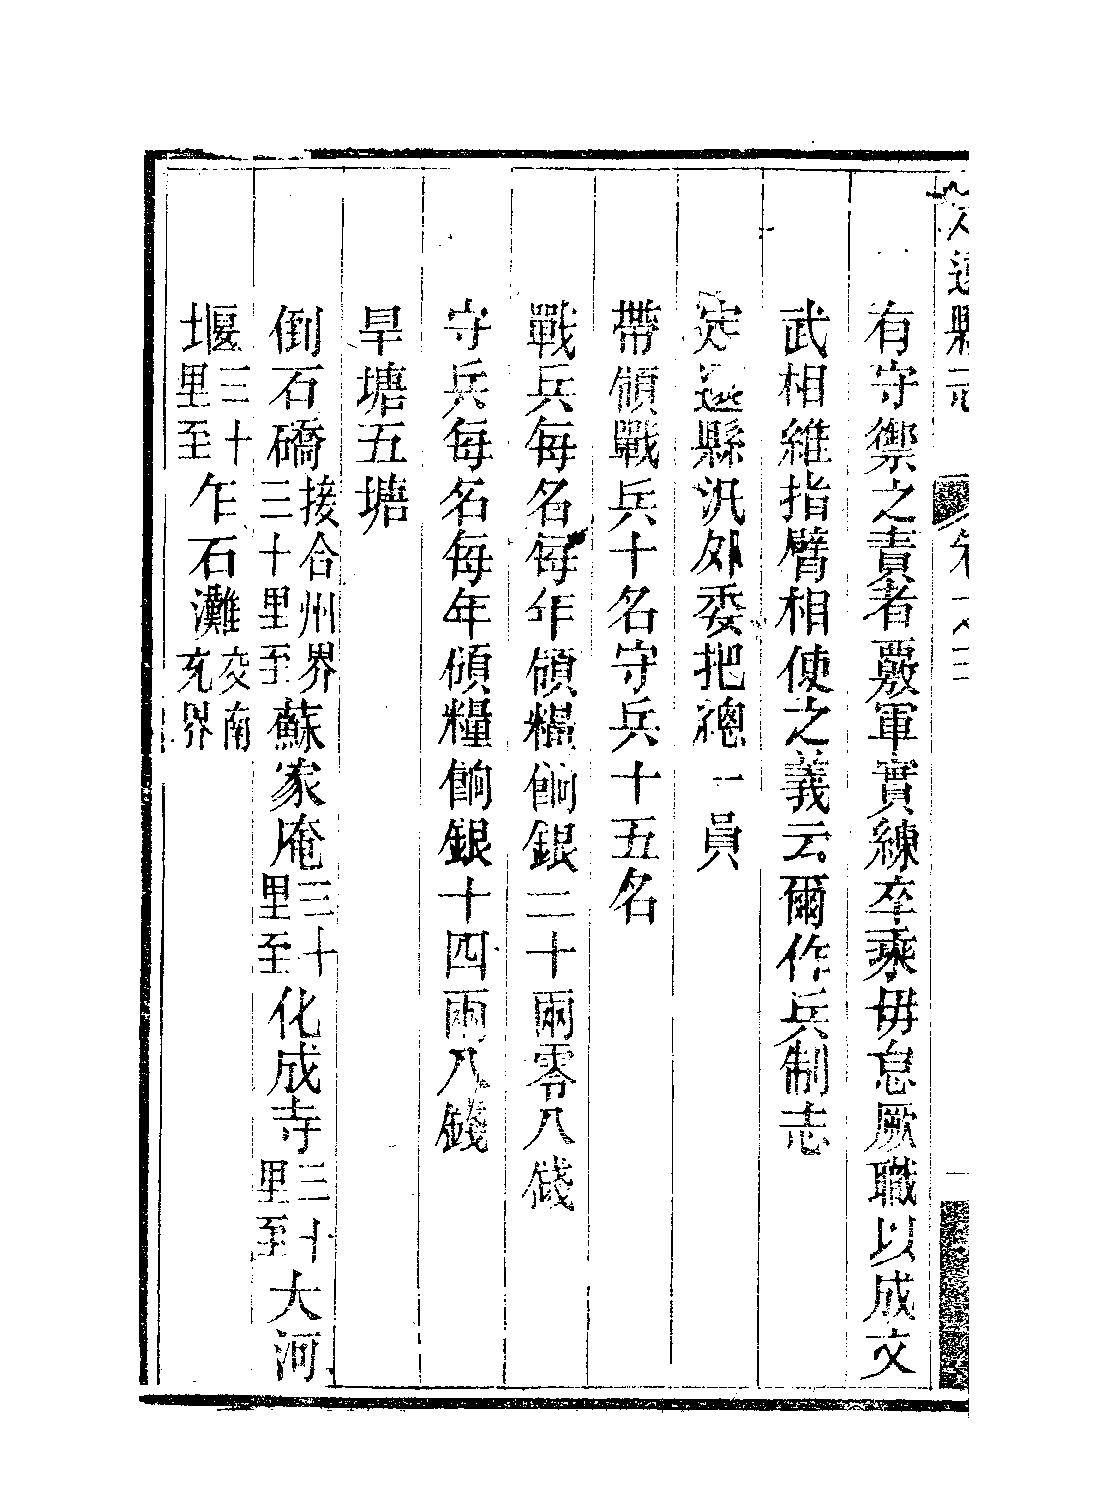 遠縣志
有守禦之責者覈軍實練卒乘毋怠厥職以成文
武相維指臂相使之義云爾作兵制志
定遠縣汛外委把總一員
帶領戰兵十名守兵十五名
戰兵每名每年領糧餉銀二十兩零八錢
守兵每名每年領糧餉銀十四兩八錢
旱塘五塘
倒石礄接合州界三十里至蘇家庵三十里至化成寺三十里至大河
堰三十里至乍石灘交南充界